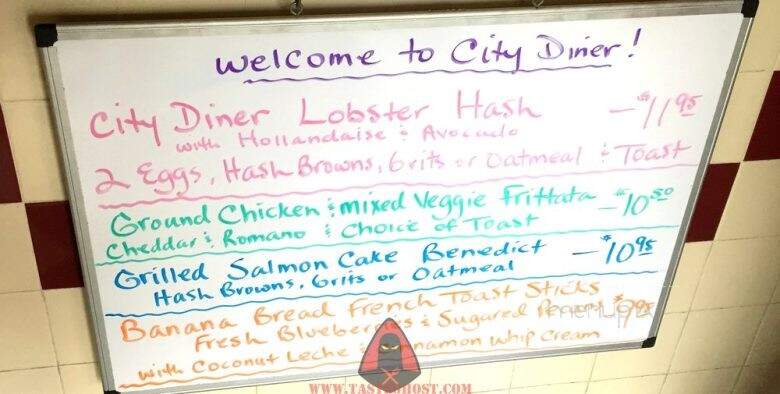 Welcome to City Diner!
City Diner Lobster Hash - $11 95
with Hollandaise & Avocado
2 Eggs, Hash Browns, Grits or Oatmeal & Toast
Ground Chicken & mixed Veggie Frittata - $10 50
Cheddar & Romano & Choice of Toast
Grilled Salmon Cake Benedict - $10 95
Hash Browns, Grits or Oatmeal
Banana Bread French Toast Sticks
Fresh Blueberries & Sugared $9 95
with Coconut Leche Cinnamon Whip Cream
WWW.TASTYGHOST.COM